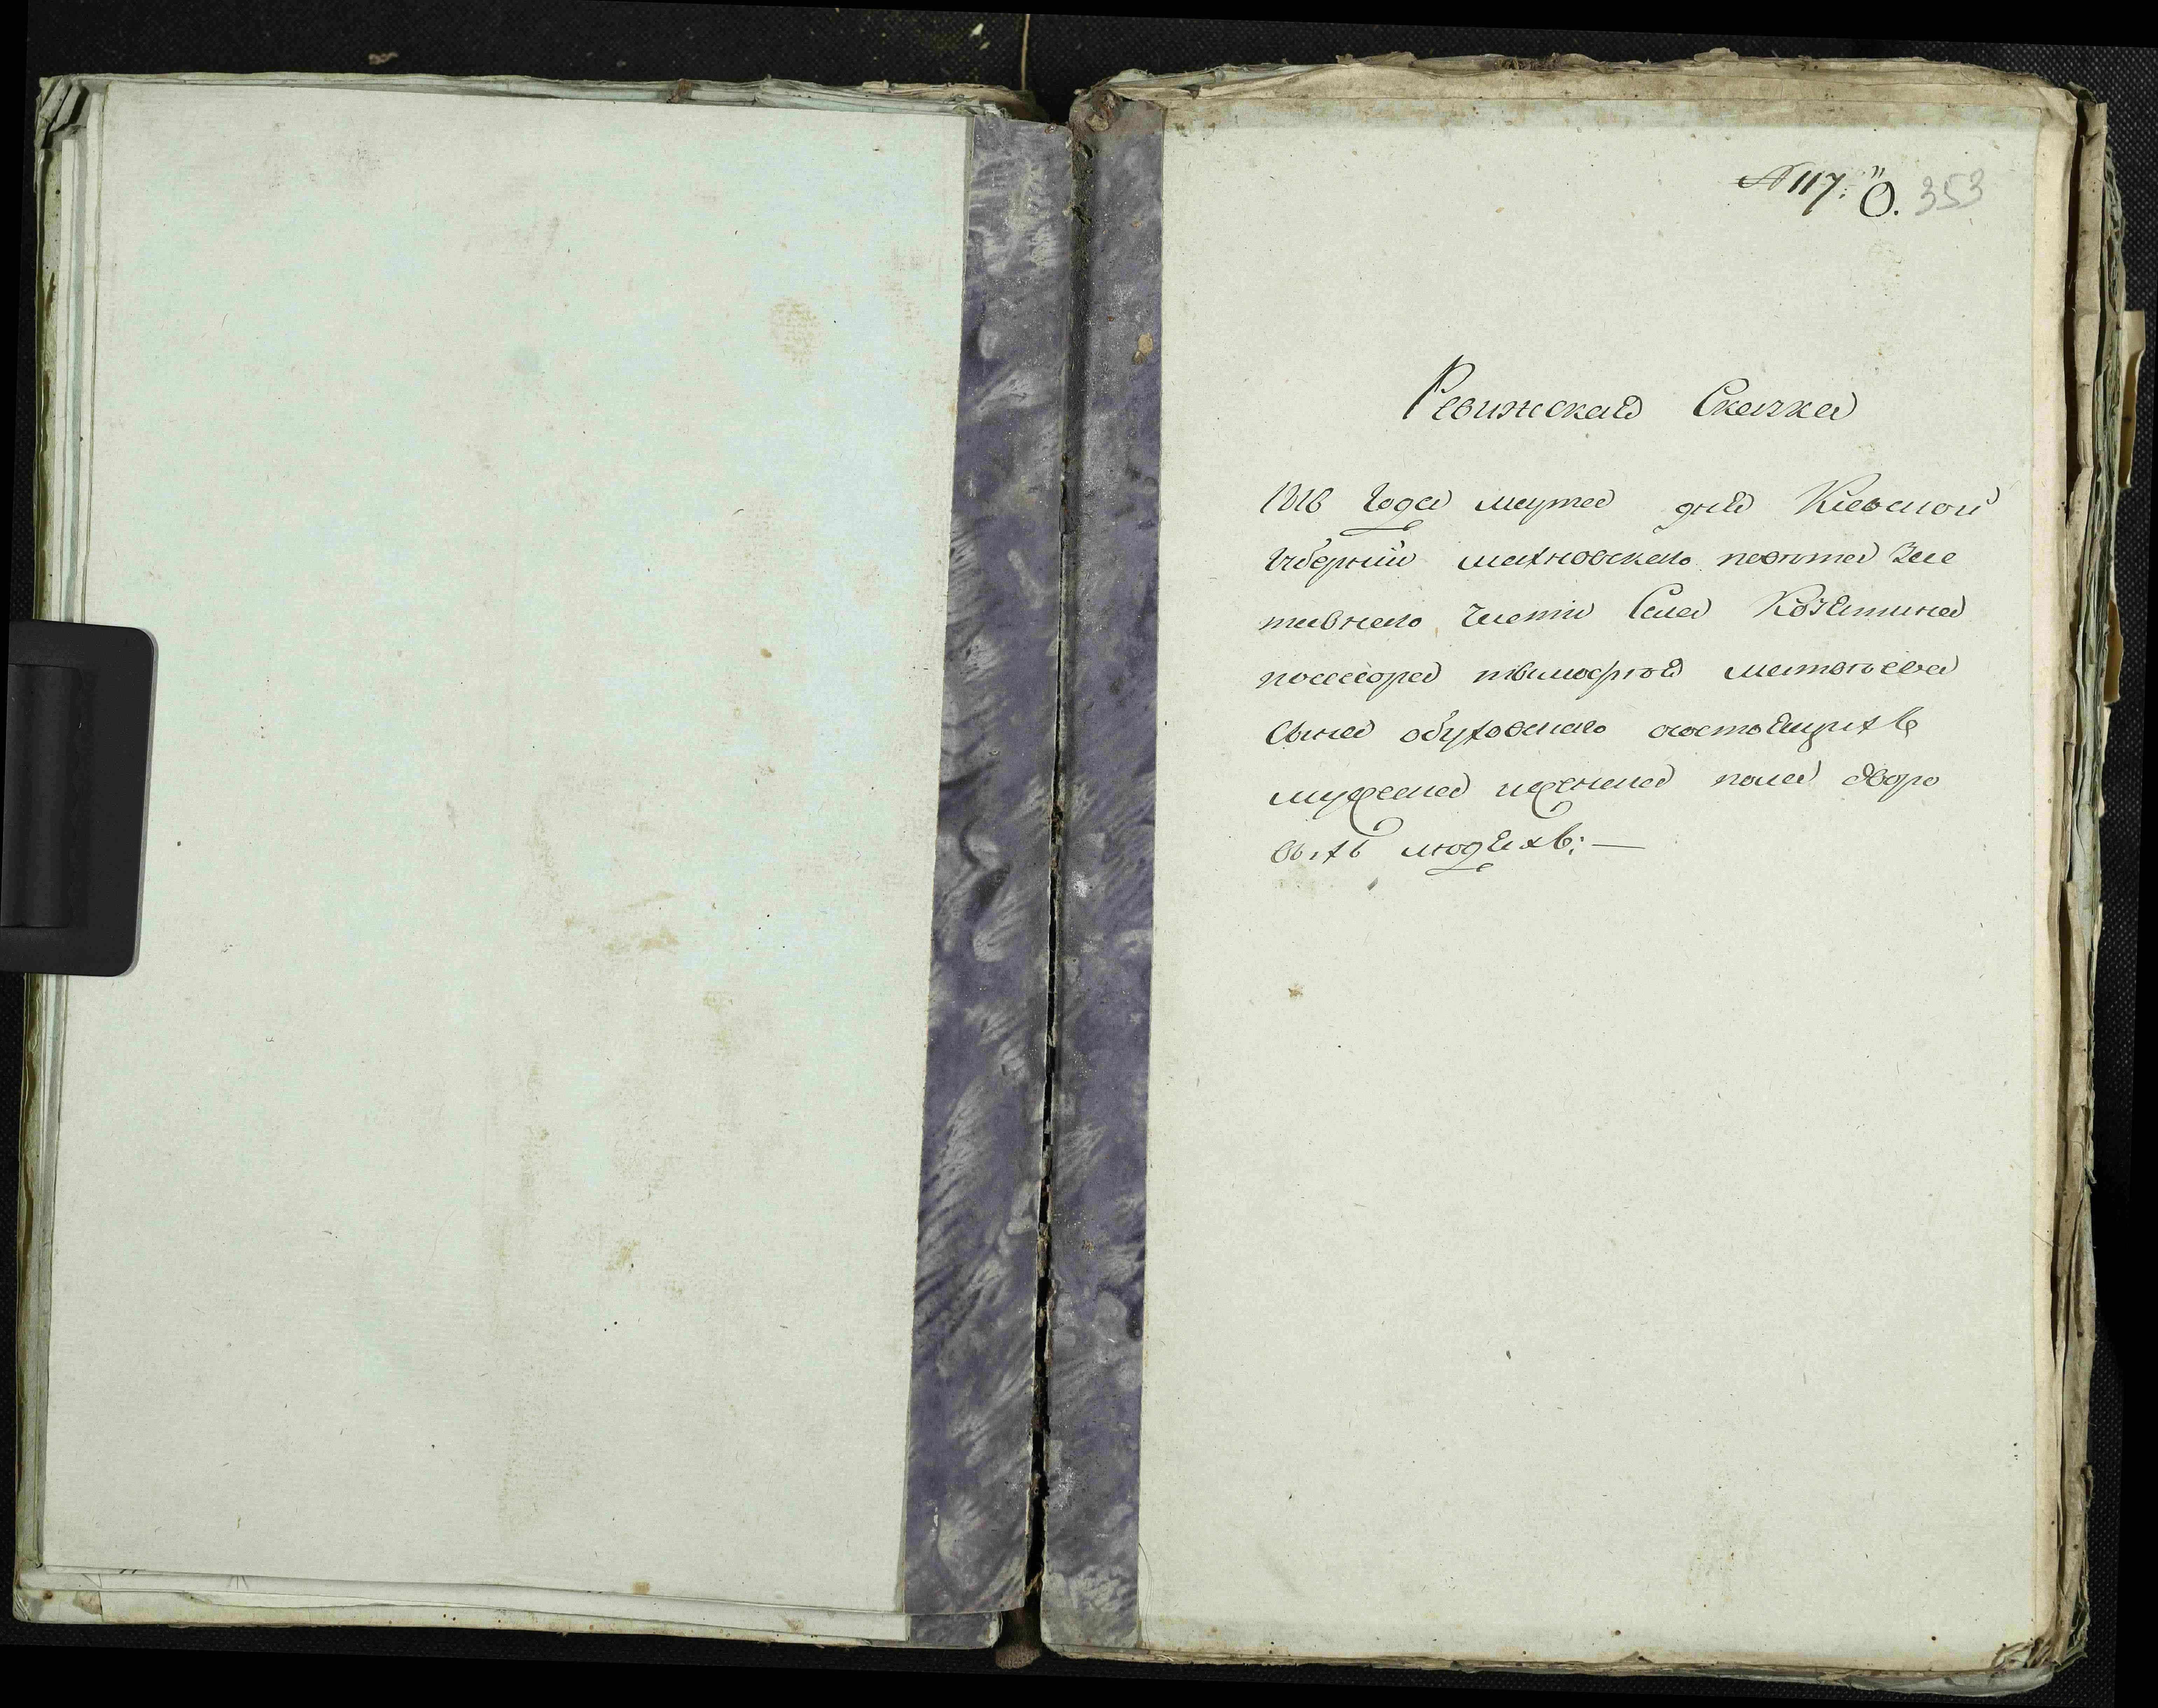 № 117. О. 353
Ревижская Сказка
1816 Года марта дня Кіевской
Губерніи махновского повѣта Зае
тавнего Части Села Козятина
посессора тимофія матвѣева
Сына обуховскаго состоящихъ
мужеска иженска пола дворо
выхъ людяхъ: —